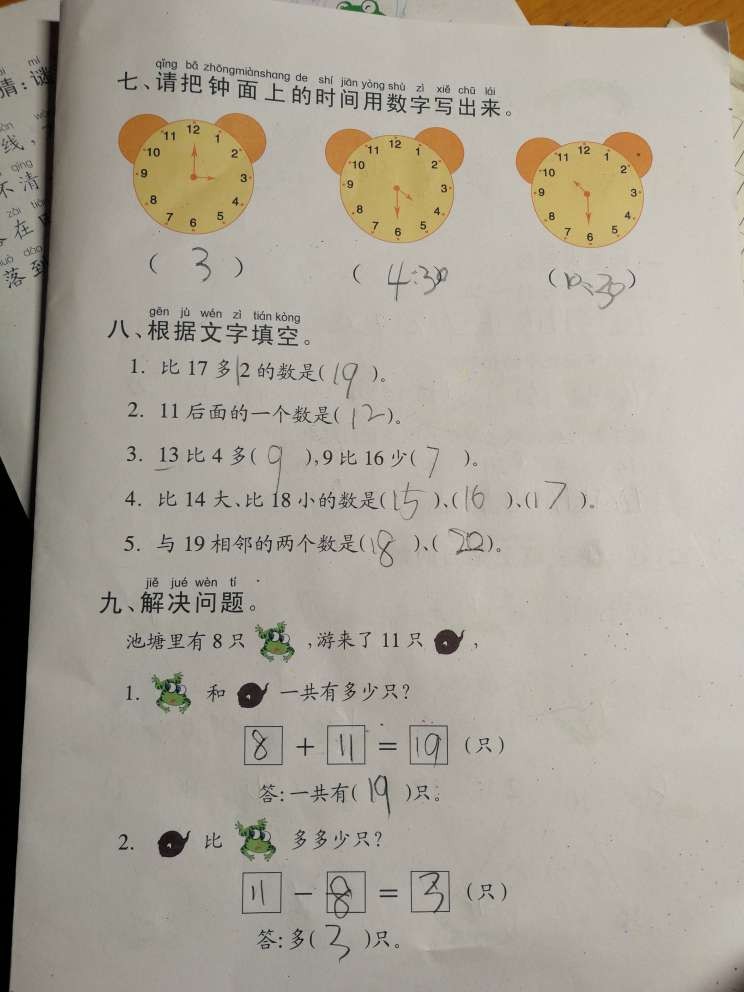 qīng bǎ zhōngmiànshang de shí jiān yòng shù zì xiě chū lái
七、请把钟面上的时间用数字写出来。
12 1 2 3 4 5 6 7 8 9 10 11
12 1 2 3 4 5 6 7 8 9 10 11
12 1 2 3 4 5 6 7 8 9 10 11
( 3 ) ( 4:30 (10:30)
gēn jù wén zì tián kòng
八、根据文字填空。
1. 比 17 多 2 的数是( 19 )。
2. 11 后面的一个数是( 12 )。
3. 13 比 4 多( 9 ),9 比 16 少( 7 )。
4. 比 14 大、比 18 小的数是( 15 )、( 16 )、( 17 )。
5. 与 19 相邻的两个数是( 18 )、( 20 )。
jiě jué wèn tí
九、解决问题。
池塘里有 8 只 ,游来了 11 只 ,
1. 和 一共有多少只?
8 + 11 = 19 (只)
答:一共有( 19 )只。
2. 比 多多少只?
11 - 8 = 3 (只)
答:多( 3 )只。